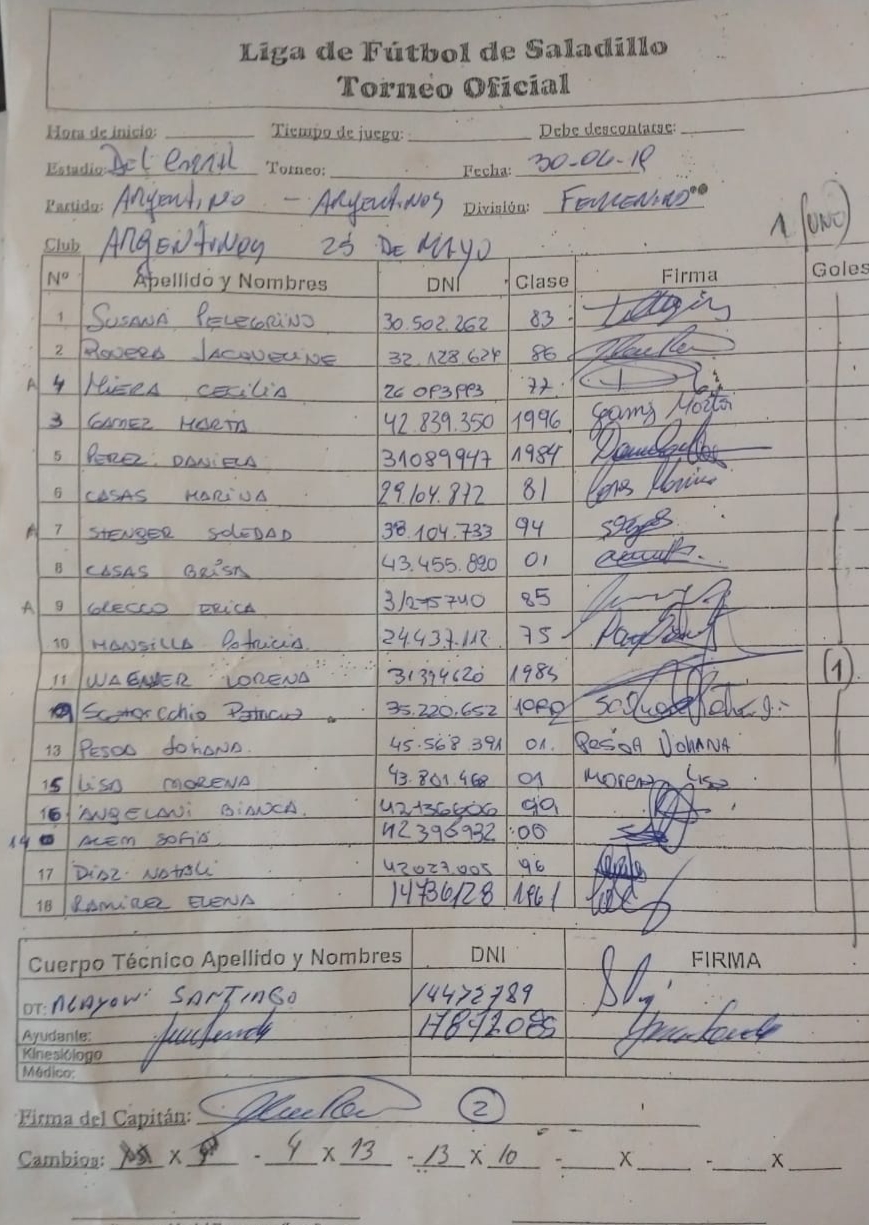 Liga de Fútbol de Saladillo
Torneo Oficial
Hora de inicio: Tiempo de juego: Debe descontarse:
Estadio: Del Torneo: Fecha: 30-04-19
Partido: Argentino - Argentinos División: Femenino
1 (UNO)
Club ARGENTINOS 25 DE MAYO
Nº Apellido y Nombres DNI Clase Firma Goles
1 SUSANA PELEGRINO 30.502.262 83
2 ROVERA JACQUELINE 32.128.624 86
A 4 MIERA CECILIA 26 093993 77
3 GAMEZ MARTA 42.839.350 1996
5 PEREZ DANIELA 31089947 1984
6 CASAS MARINA 29104.872 81
A 7 STENGER SOLEDAD 38.104.733 94
8 CASAS BRISA 43.455.890 01
A 9 GRECCO ERICA 31275740 85
10 MANSILLA Patricia 24.437.112 75
11 WAGNER LORENA 31394620 1985 (1)
Patricia 35.220.652
13 PESOA JOHANA. 45.568.391 01. PESOA JOHANA
15 LISA MORENA 43.801.468 01 Morena Lisa
16 ANGELANI BIANCA. 42136606 99
14 ALEM SOFIA 42396932 00
17 DIAZ NATALI 42023.005 96
18 RAMIREZ ELENA 14736128 1961
Cuerpo Técnico Apellido y Nombres DNI FIRMA
DT: SANTIAGO 14472789
Ayudante: 17872085
Kinesiólogo
Médico:
Firma del Capitán: 2
Cambios: X - 4 X 13 - 13 X 10 - X - X